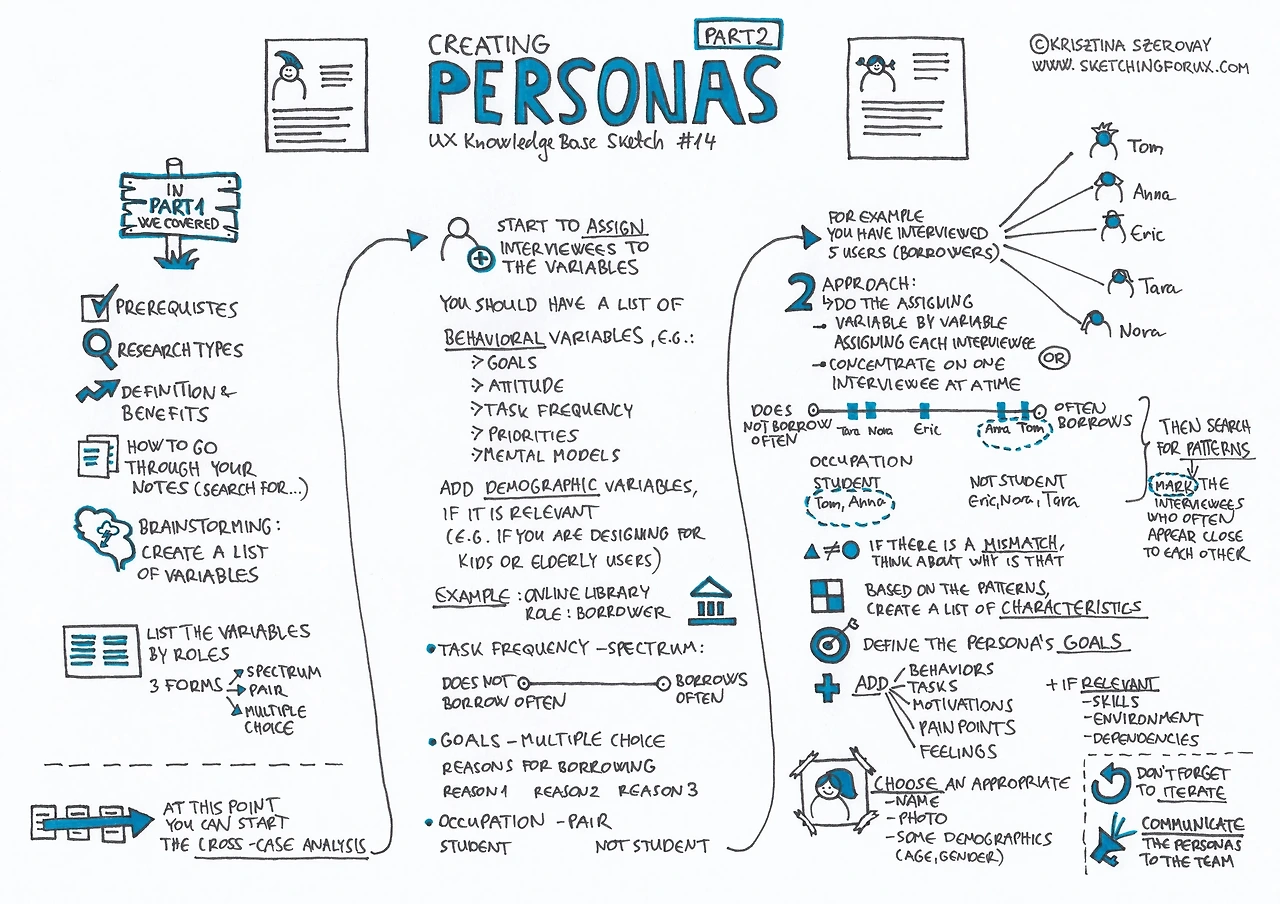 CREATING
PART 2
PERSONAS
UX Knowledge Base Sketch #14
©KRISZTINA SZEROVAY
WWW.SKETCHINGFORUX.COM
IN
PART 1
WE COVERED
PREREQUISTES
RESEARCH TYPES
DEFINITION &
BENEFITS
HOW TO GO
THROUGH YOUR
NOTES (SEARCH FOR...)
BRAINSTORMING:
CREATE A LIST
OF VARIABLES
LIST THE VARIABLES
BY ROLES
3 FORMS
SPECTRUM
PAIR
MULTIPLE
CHOICE
AT THIS POINT
YOU CAN START
THE CROSS-CASE ANALYSIS
START TO ASSIGN
INTERVIEWEES TO
THE VARIABLES
YOU SHOULD HAVE A LIST OF
BEHAVIORAL VARIABLES, E.G.:
GOALS
ATTITUDE
TASK FREQUENCY
PRIORITIES
MENTAL MODELS
ADD DEMOGRAPHIC VARIABLES,
IF IT IS RELEVANT
(E.G. IF YOU ARE DESIGNING FOR
KIDS OR ELDERLY USERS)
EXAMPLE: ONLINE LIBRARY
ROLE: BORROWER
• TASK FREQUENCY – SPECTRUM:
DOES NOT
BORROW OFTEN
BORROWS
OFTEN
• GOALS – MULTIPLE CHOICE
REASONS FOR BORROWING
REASON 1 REASON 2 REASON 3
• OCCUPATION – PAIR
STUDENT NOT STUDENT
FOR EXAMPLE
YOU HAVE INTERVIEWED
5 USERS (BORROWERS)
Tom
Anna
Eric
Tara
Nora
2 APPROACH:
DO THE ASSIGNING
VARIABLE BY VARIABLE
ASSIGNING EACH INTERVIEWEE
OR
CONCENTRATE ON ONE
INTERVIEWEE AT A TIME
DOES
NOT BORROW
OFTEN
Tara Nora Eric Anna Tom
OFTEN
BORROWS
OCCUPATION
STUDENT
Tom, Anna
NOT STUDENT
Eric, Nora, Tara
THEN SEARCH
FOR PATTERNS
MARK THE
INTERVIEWEES
WHO OFTEN
APPEAR CLOSE
TO EACH OTHER
≠
IF THERE IS A MISMATCH,
THINK ABOUT WHY IS THAT
BASED ON THE PATTERNS,
CREATE A LIST OF CHARACTERISTICS
DEFINE THE PERSONA'S GOALS
ADD
BEHAVIORS
TASKS
MOTIVATIONS
PAIN POINTS
FEELINGS
+ IF RELEVANT
-SKILLS
-ENVIRONMENT
-DEPENDENCIES
CHOOSE AN APPROPRIATE
-NAME
-PHOTO
-SOME DEMOGRAPHICS
(AGE, GENDER)
DON'T FORGET
TO ITERATE
COMMUNICATE
THE PERSONAS
TO THE TEAM